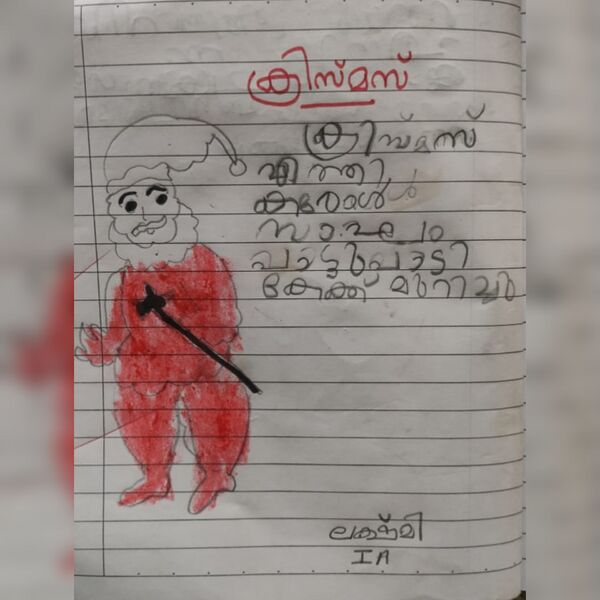 ക്രിസ്മസ്
ക്രിസ്മസ്
എത്തി
കരോൾ
സംഘം
പാട്ടുപാടി
കേക്ക് മുറിച്ചു
ലക്ഷ്മി
I A